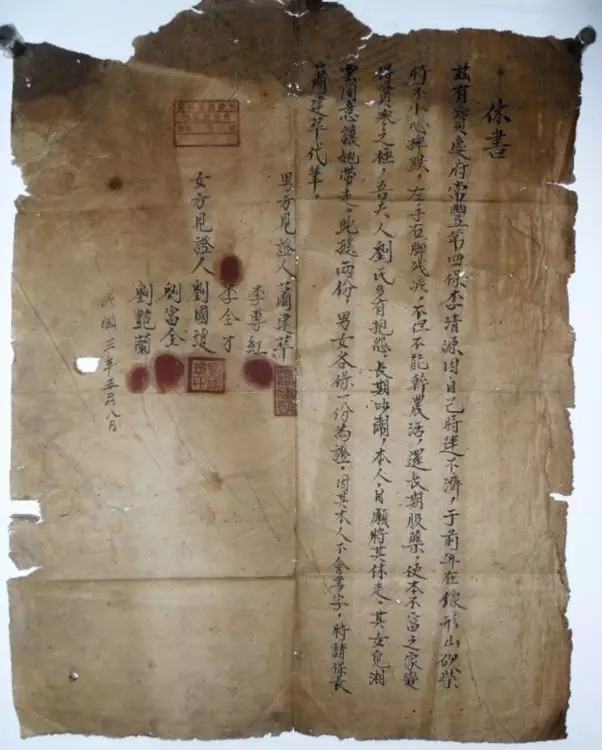 休書
茲有寶慶府常豐第四保李清源因自己時運不濟，于前年在像形山砍柴
時不小心摔跌，左手右脚残疾，不但不能幹農活，還長期服藥，使本不富之家變
得貧寒之極，吾夫人劉氏多有抱怨，長期吵鬧，本人自願將其休走。其女兒湘
雲同意讓她帶走。此據两份，男女各保一份為證。因其本人不會寫字，特請保長
蕭建華代筆。
男方見證人 蕭建華
李尊紅
李全才
女方見證人 劉國
劉富全
劉艷蘭
民國三年五月八月